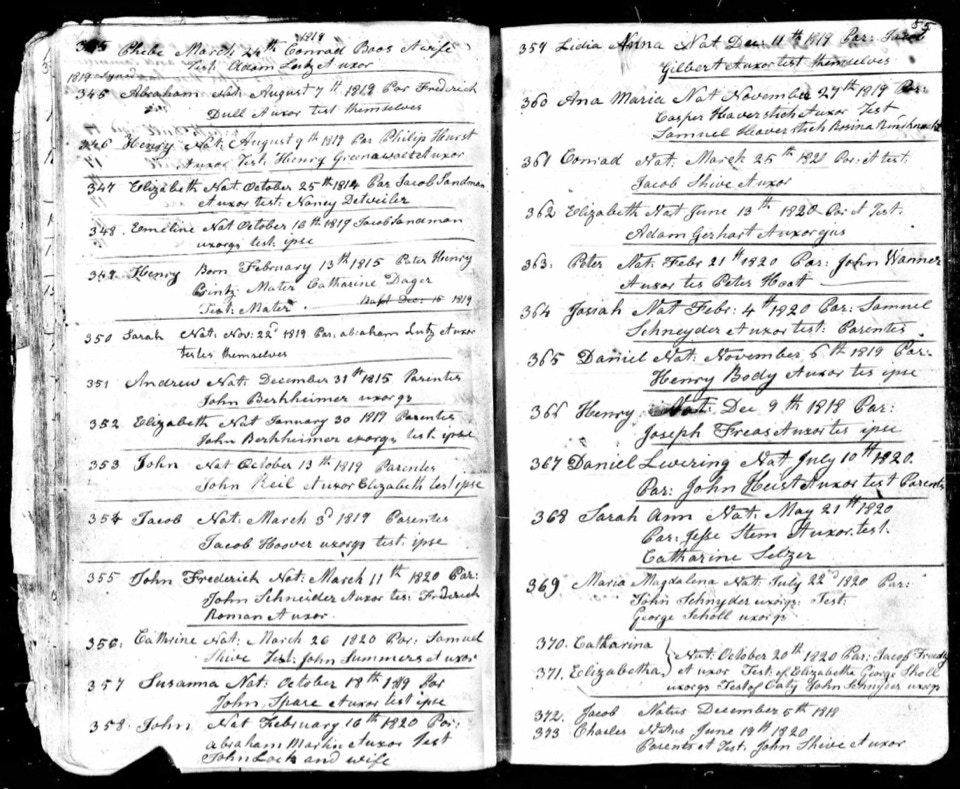 1819
345 Phebe March 24th Conrad Boos & wife
Test. Adam Lutz & uxor
1819
345 Abraham Nat. August 7th 1819 Par Frederick
Dull & uxor test themselves
346 Henry Nat. August 9th 1819 Par Philip Hurst
& uxor Test. Henry Greenawalt & uxor
347 Elizabeth Nat October 25th 1814 Par Jacob Landman
& uxor test: Nancy Detweiler
348. Emeline Nat October 16th 1819 Jacob Landman
uxorqs test ipse
349. Henry Born February 13th 1815 Pater Henry
Printz Mater Catharine Dager
Test: Mater Bapt Dec. 15 1819
350 Sarah Nat. Nov: 22d 1819 Par: abraham Lutz & uxor
testes themselves
351 Andrew Nat: December 31st 1815 Parentes
John Berkheimer uxorqs
352 Elizabeth Nat January 30 1819 Parentes
John Berkheimer uxorqs test ipse
353 John Nat October 13th 1819 Parentes
John Keil & uxor Elizabeth test ipse
354 Jacob Nat: March 3d 1819 Parentes
Jacob Hoover uxorqs test ipse
355 John Frederick Nat: March 11th 1820 Par:
John Schneider & uxor tes: Frederick
Roman & uxor
356. Cathrine Nat: March 26 1820 Par: Samuel
Shive Test: John Summers & uxor
357 Susanna Nat: October 18th 1819 Par
John Spare & uxor test ipse
358. John Nat February 16th 1820 Par:
abraham Martin & uxor Test
John Lock and wife
85
359 Lidia Anna Nat Dec: 11th 1819 Par: Jacob
Gilbert & uxor test themselves
360 Ana Maria Nat November 27th 1819 Par:
Casper Haverstich & uxor Test
Samuel Haverstich Rosina
361 Conrad Nat. March 25th Par: & test.
Jacob Shive & uxor
362 Elizabeth Nat June 13th 1820 Par & Test:
Adam Gerhart & uxor
363. Peter Nat: Febr 21st 1820 Par: John Wanner
& uxor tes Peter
364 Josiah Nat Febr: 4th 1820 Par: Samuel
Schneyder & uxor test: Parentes
365 Daniel Nat: November 5th 1819 Par:
Henry Body & uxor tes ipse
366 Henry Nat: Dec 9th 1818 Par:
Joseph Freas & uxor tes ipse
367 Daniel Levering Nat July 10th 1820.
Par: John Heist & uxor test Parentes
368 Sarah Ann Nat: May 21st 1820
Par: Jesse Stem & uxor test.
Catharine Selzer
369 Maria Magdalena Nat: July 22d 1820 Par:
John Schnyder uxorqs: Test:
George Scholl uxorqs
370. Catharina
Nat: October 20th 1820 Par: Jacob
371. Elizabetha & uxor Test: of Elizabetha George Sholl
uxorqs Test of Caty John Schnyder uxorqs
372. Jacob Natus December 5th 1818
373 Charles Natus June 19th 1820
Parents & Test. John Shive & uxor